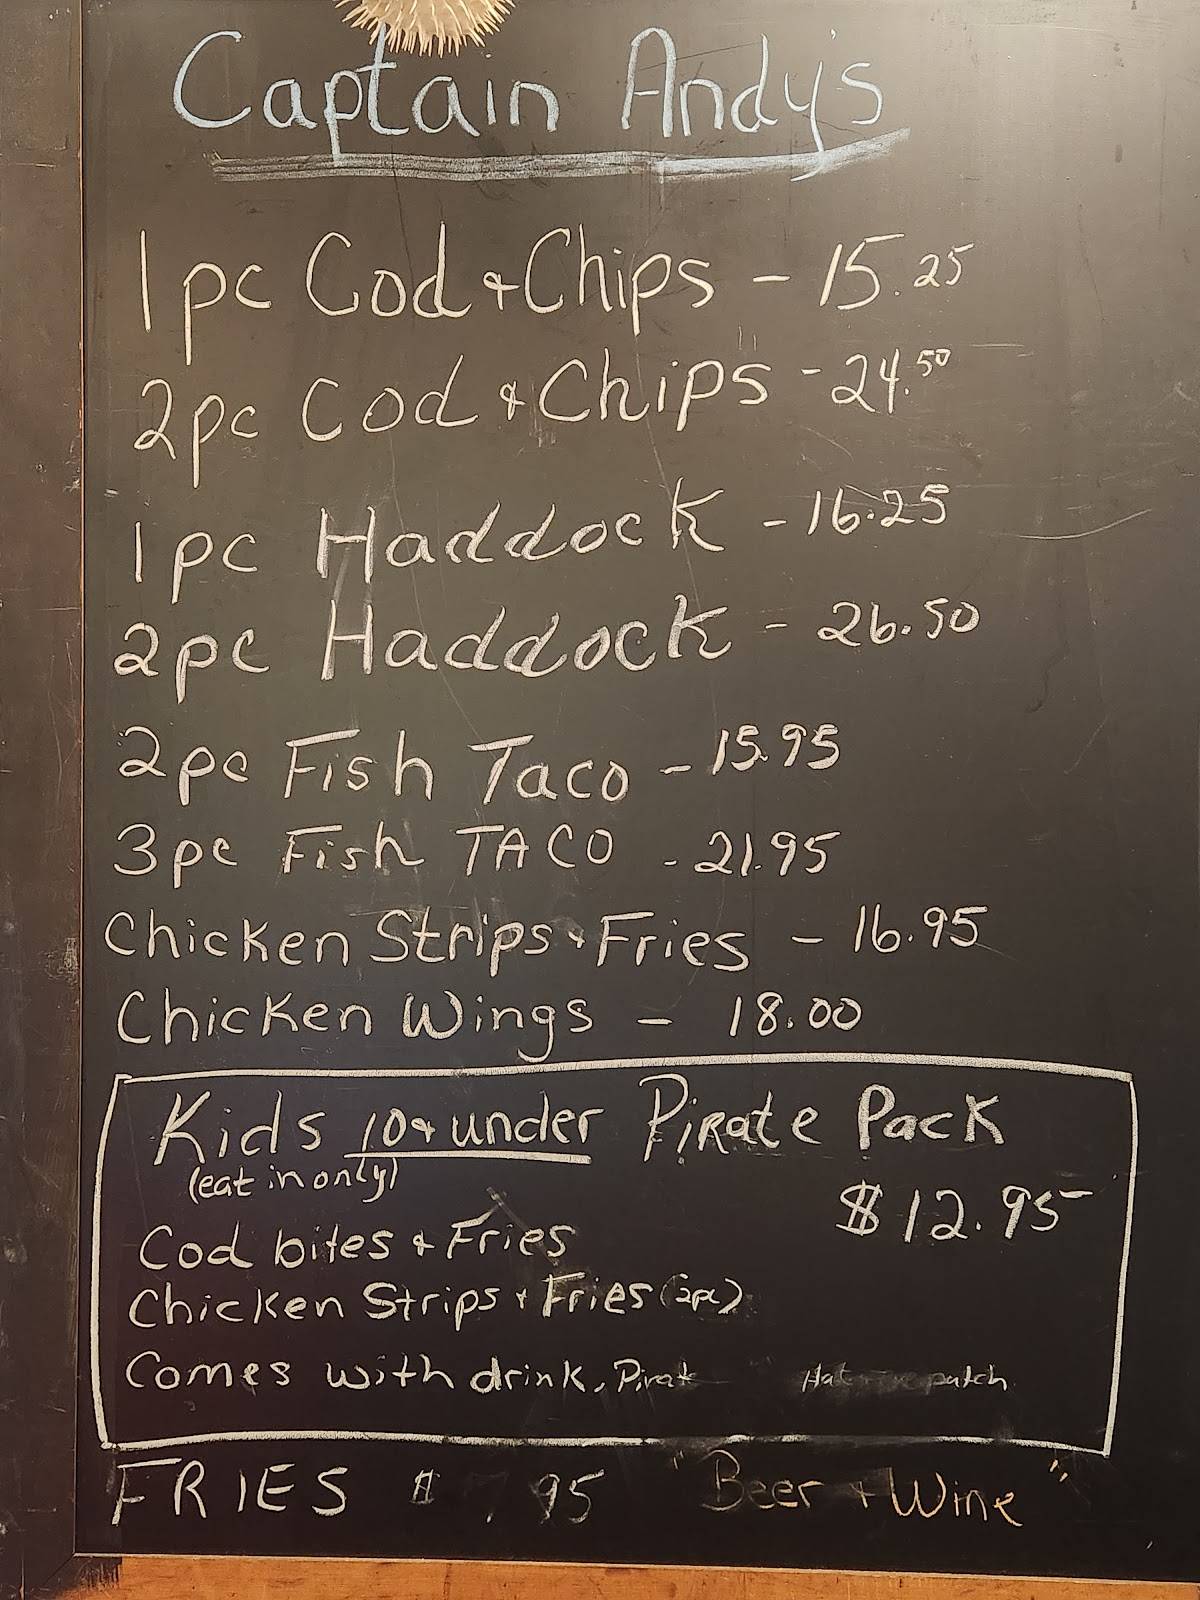 Captain Andy's
1pc Cod & Chips - 15.25
2pc Cod & Chips - 24.50
1pc Haddock - 16.25
2pc Haddock - 26.50
2pc Fish Taco - 15.95
3pc Fish TACO - 21.95
Chicken Strips & Fries - 16.95
Chicken Wings - 18.00
Kids 10 & under Pirate Pack
(eat in only)
$12.95
Cod bites & Fries
Chicken Strips & Fries (2pc)
Comes with drink, Pirate patch
FRIES $ 7.95 "Beer & Wine"